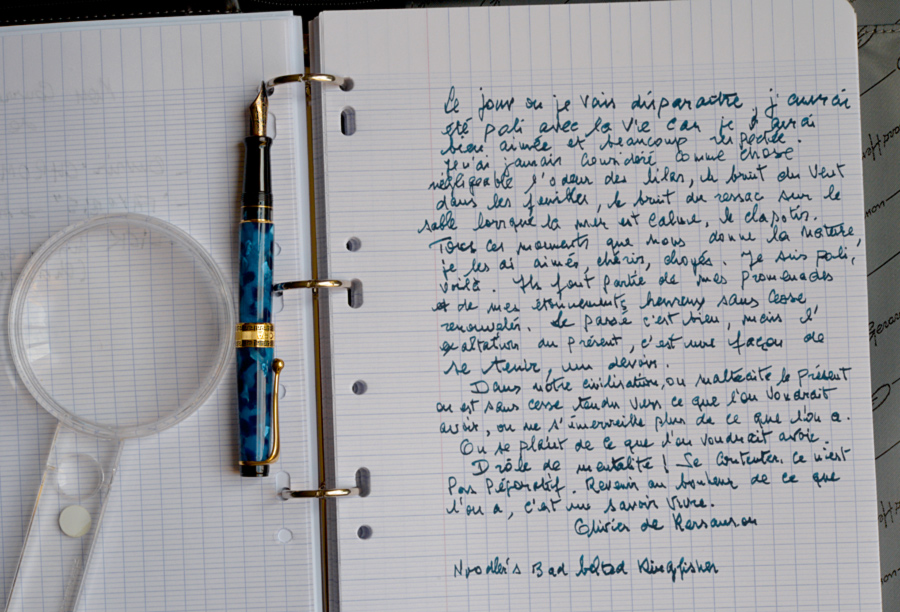 Le jour où je vais disparaître, j'aurai
été poli avec la vie car je l'aurai
bien aimée et beaucoup respectée.
Je n'ai jamais considéré comme chose
négligeable l'odeur des lilas, le bruit du vent
dans les feuilles, le bruit du ressac sur le
sable lorsque la mer est calme, le clapotis.
Tous ces moments que nous donne la nature,
je les ai aimés, chéris, choyés. Je suis poli,
voilà. Ils font partie de mes promenades
et de mes étonnements heureux sans cesse
renouvelés. Le passé c'est bien, mais l'
exaltation du présent, c'est une façon de
se tenir, un devoir.
Dans notre civilisation, on maltraite le présent
on est sans cesse tendu vers ce que l'on voudrait
avoir, on ne s'émerveille plus de ce que l'on a.
On se plaint de ce que l'on voudrait avoir.
Drôle de mentalité ! Se contenter, ce n'est
pas péjoratif. Revenir au bonheur de ce que
l'on a, c'est un savoir vivre.
Olivier de Kersauson
Noodler's Bad belted Kingfisher